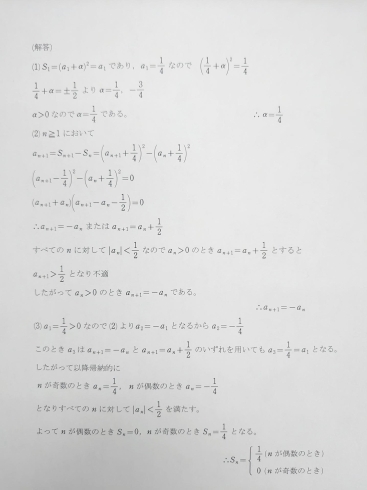 (解答)
(1) S₁=(a₁+α)²=a₁ であり、a₁=1/4 なので (1/4+α)²=1/4
1/4+α=±1/2 より α=1/4, −3/4
α>0 なので α=1/4 である。 ∴ α=1/4
(2) n≧1 において
aₙ₊₁=Sₙ₊₁−Sₙ=(aₙ₊₁+1/4)²−(aₙ+1/4)²
(aₙ₊₁−1/4)²−(aₙ+1/4)²=0
(aₙ₊₁+aₙ)(aₙ₊₁−aₙ−1/2)=0
∴aₙ₊₁=−aₙ または aₙ₊₁=aₙ+1/2
すべての n に対して |aₙ|<1/2 なので aₙ>0 のとき aₙ₊₁=aₙ+1/2 とすると
aₙ₊₁>1/2 となり不適
したがって aₙ>0 のとき aₙ₊₁=−aₙ である。
∴aₙ₊₁=−aₙ
(3) a₁=1/4>0 なので (2) より a₂=−a₁ となるから a₂=−1/4
このとき a₃ は aₙ₊₁=−aₙ と aₙ₊₁=aₙ+1/2 のいずれを用いても a₃=1/4=a₁ となる。
したがって以降帰納的に
n が奇数のとき aₙ=1/4, n が偶数のとき aₙ=−1/4
となりすべての n に対して |aₙ|<1/2 を満たす。
よって n が偶数のとき Sₙ=0, n が奇数のとき Sₙ=1/4 となる。
∴Sₙ={ 1/4 (n が偶数のとき)
0 (n が奇数のとき)